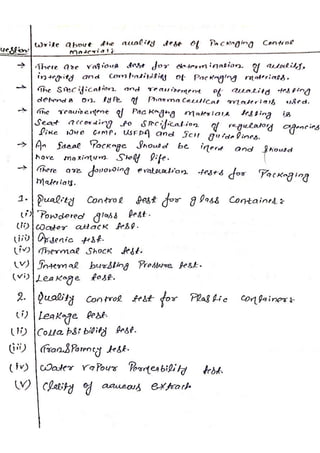 Question: Write about the quality test of Packaging Control
Materials.
→ There are various test for determination of quality,
integrity and compatibility of Packaging materials.
→ The Specification and requirement of quality testing
depends on type of Pharmaceutical materials used.
→ The requirement of Packaging materials testing is
Seat according to Specification of regulatory agencies
like WHO GMP, USFDA and ICH guidelines.
→ An Ideal Package Should be inert and Should
have maximum Shelf life.
→ There are following evaluation tests for Packaging
Materials.
1. Quality Control test for glass Containers:
(i) Powdered glass test.
(ii) Water attack test.
(iii) Arsenic test.
(iv) Thermal Shock test.
(v) Internal bursting Pressure test.
(vi) Leakage test.
2. Quality Control test for Plastic Containers
(i) Leakage test.
(ii) Collapsibility test.
(iii) Transparency test.
(iv) Water vapour Permeability test.
(v) Clarity of aqueous extract